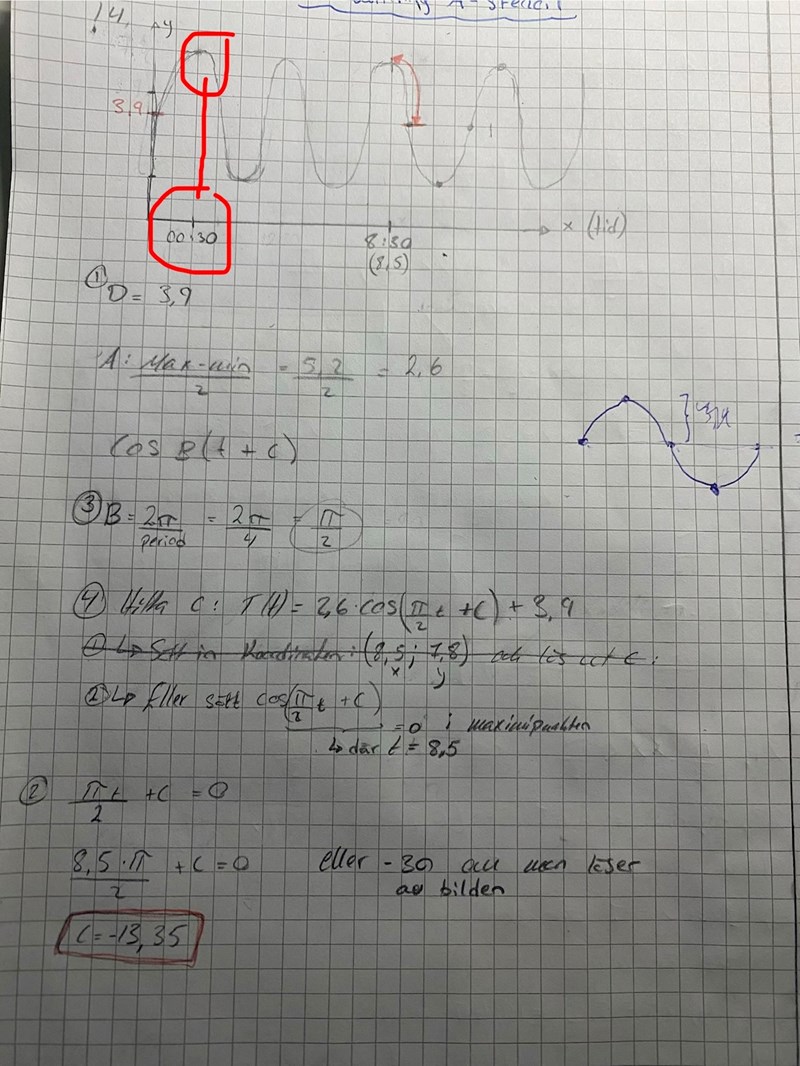 14.
y
3,9
00:30
8:30
(8,5)
x (tid)
① D = 3,9
A: Max-min / 2 = 5,2 / 2 = 2,6
cos B(t + c)
③ B = 2π / period = 2π / 4 = π / 2
④ Hitta C: T(t) = 2,6·cos(π/2 t + C) + 3,9
① ↳ Sätt in Koordinaten: (8,5; 7,8) och lös ut C:
x y
② ↳ Eller sätt cos(π/2 t + C)
= 0 i maximipunkten
↳ där t = 8,5
② πt / 2 + C = 0
8,5·π / 2 + C = 0 eller -30 om man läser
av bilden
C = -13,35